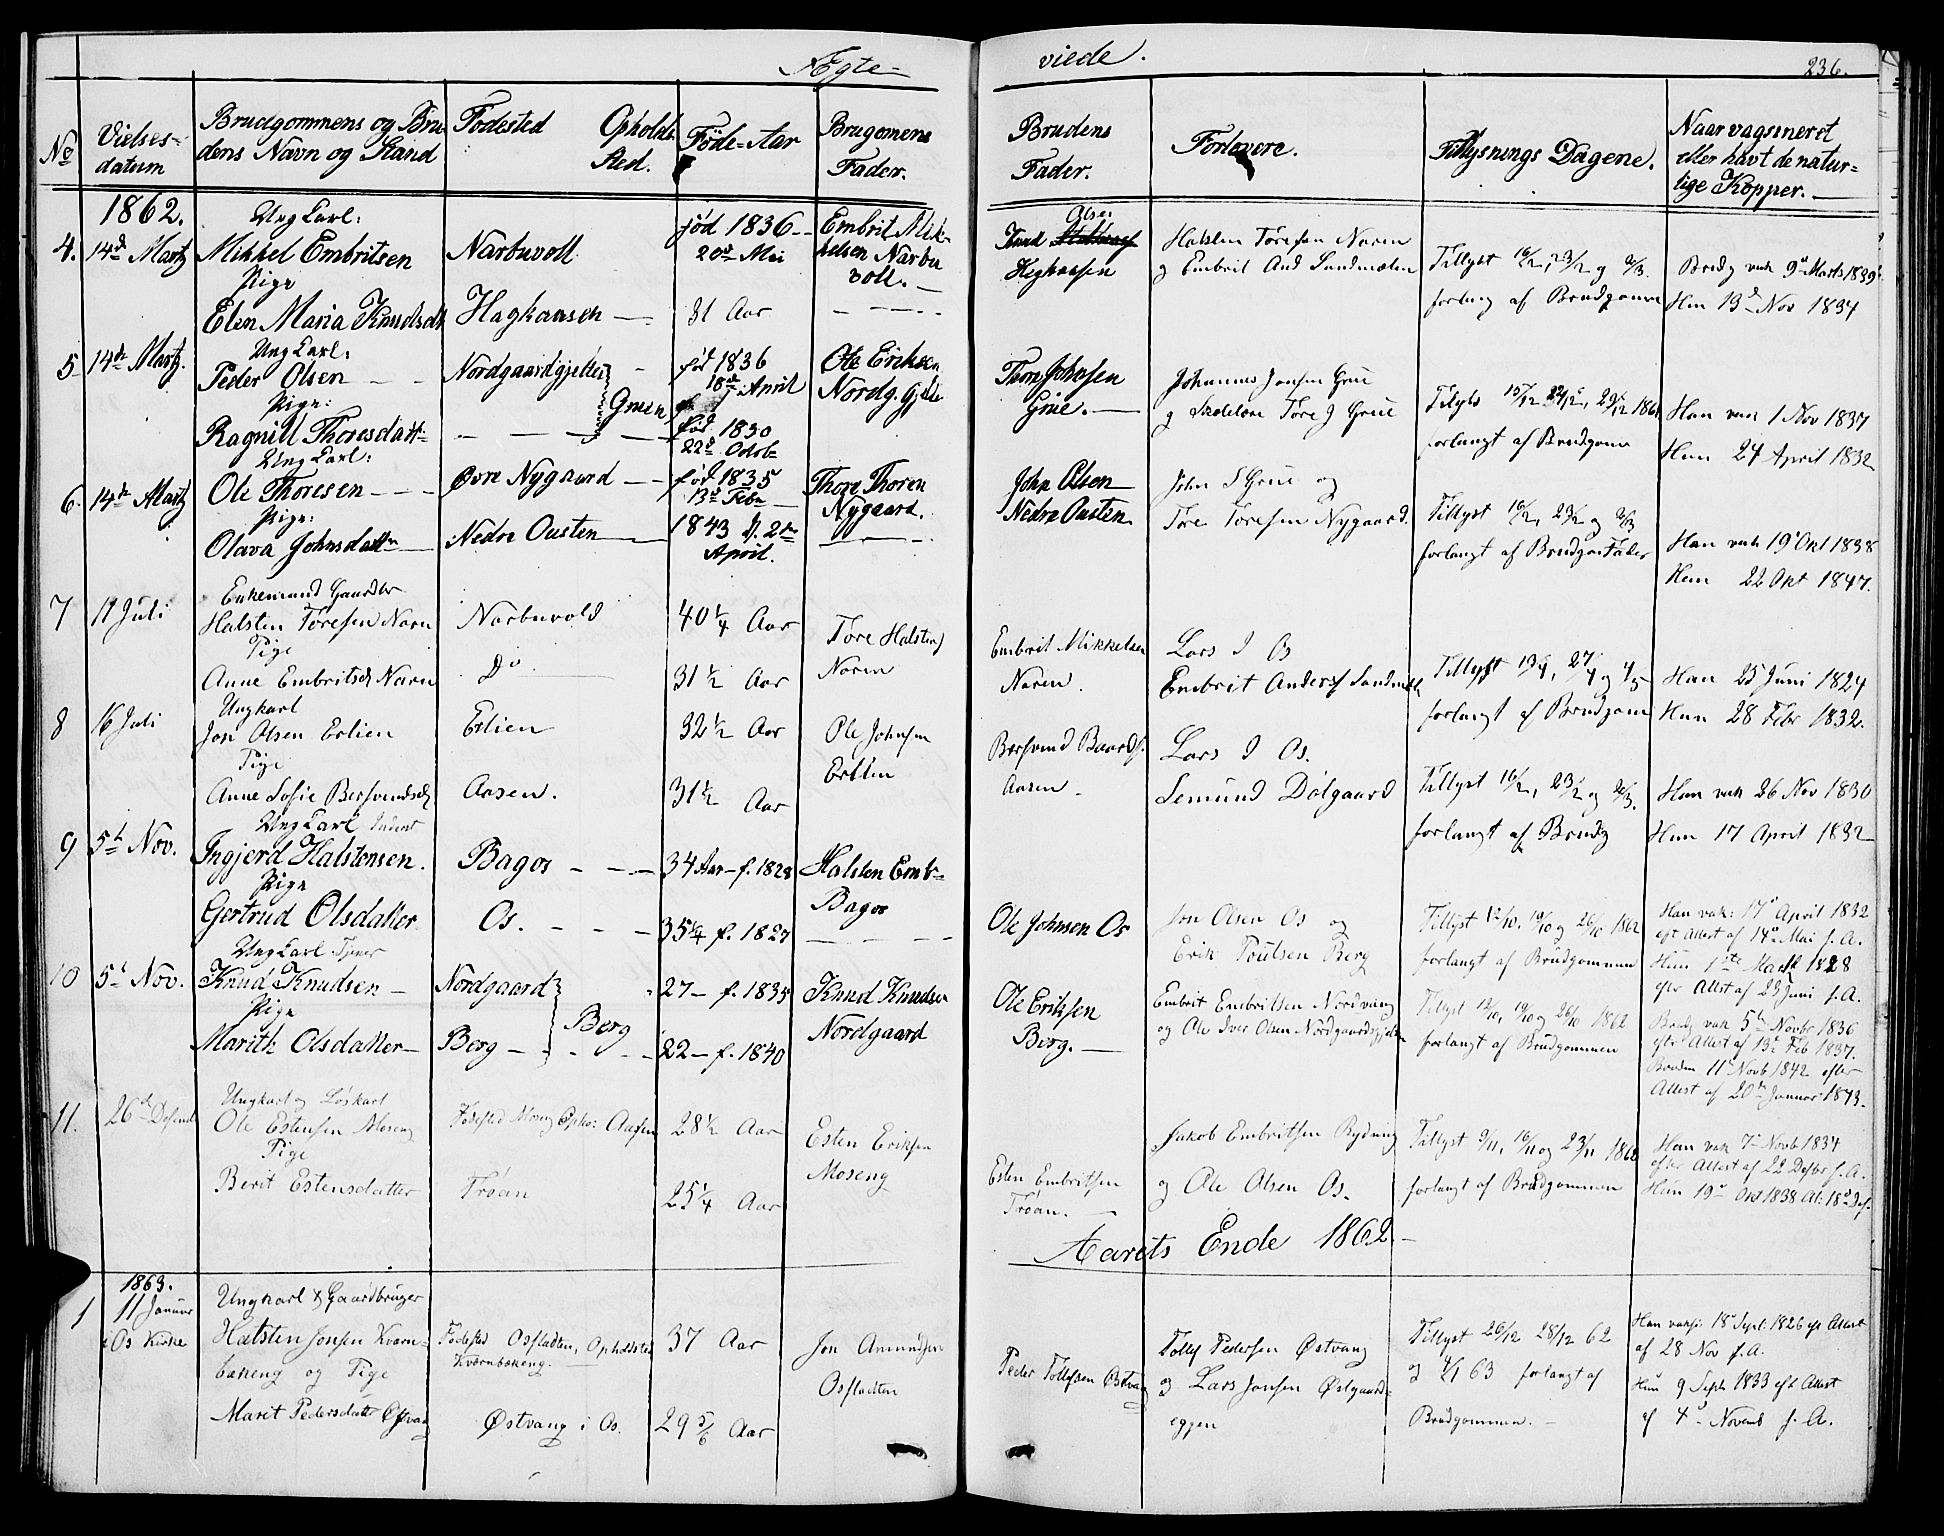 Ægte-
viede.
236.
No
Vielses-
datum
Brudgommens og Bru
dens Navn og Stand
Fødested Opholds
Sted.
Føde-Aar
Brugomens
Fader.
Brudens
Fader.
Forlovere.
Tillysnings Dagene.
Naar vagsineret
eller havt de natur-
lige Kopper.
1862.
4. 14de Martz
Ung Karl:
Mikkel Embritsen
Pige
Elen Maria Knudsdt
Narbuvoll
Haghaasen
født 1836
20de Mai
31 Aar
Embrit Mik-
kelsen Narbu
voll.
Knud Olsen
Heghaasen
Halsten Toresen Noren
og Embrit And Sandmælen
Tillyst 16/2, 23/2 og 2/3.
forlang af Brudgomen
Brudg vak 9de Marts 1839
Hun 13de Nov 1834
5 14de Martz.
Ung Karl:
Peder Olsen
Pige:
Ragnill Thoresdatt
Nordgaardgjelten
Gruen
fød 1836
18de April
fød 1830
22de Octob
Ole Eriksen
Nordg. Gjelte
Thore Johnsen
Grue.
Johannes Jonsen Grue
og Tore J Grue
Tillyst 15/12 22/12, 29/12 1861
forlangt af Brudgom
Han vak 1 Nov 1837
Hun 24 April 1832
6. 14de Martz
Ung Karl:
Ole Thoresen
Pige:
Olava Johnsdatter
Øvre Nygaard
Nedre Ousten
fød 1835
13de Febr
1843 d. 2den
April.
Thore Thoren
Nygaard.
John Olsen
Nedre Ousten
John S Grue og
Tore Toresen Nygaard.
Tillyst 16/2, 23/2 og 2/3
forlangt af Brudgom Fader
Han vak 19de Okt 1838
Hun 22 Okt 1847.
7 11 Juli
Enkemand Gaardbr
Halsten Toresen Noren
Pige
Anne Embritsd Noren
Narbuvold
Do
40 1/4 Aar
31 1/2 Aar
Tore Halstens
Noren
Embrit Mikkelsen
Noren.
Lars J Os
Embrit Anders Sandmæl
Tillyst 13/4, 27/4 og 4/5
forlangt af Brudgom
Han 25 Juni 1824
Hun 28 Febr 1832.
8 16 Juli
Ungkarl
Jon Olsen Erlien
Pige
Anne Sofie Bersvendsd
Erlien
Aasen.
32 1/2 Aar
31 1/2 Aar
Ole Johnsen
Erlien
Bersvend Baards.
Aasen.
Lars J Os.
Semund Dølgaard
Tillyst 16/2, 23/2 og 2/3.
forlangt af Brudg
Han vak 26 Nov 1830
Hun 17 April 1832
9 5te Nov.
Ung Karl
Ingjerd Halstensen.
Pige
Gertrud Olsdatter
Bagos
Os.
34 Aar f. 1828
35 1/4 f. 1827
Halsten Emb
Bagos
Ole Johnsen Os
Jon Olsen Os og
Erik Poulsen Berg
Tillyst 12/10. 19/10 og 26/10 1862
forlangt af Brudgommen
Han vak: 17de April 1832
eft Attest af 14de Mai s. A.
Hun 1ste Martz 1828
efter Attest af 23 Juni s. A.
10 5te Nov.
Ung Karl
Knud Knudsen
Pige
Marith Olsdatter
Nordgaard
Berg
Berg
27 f. 1835
22 f. 1840
Knud Knudsen
Nordgaard
Ole Eriksen
Berg.
Embrit Embritsen Nordvang
og Ole Iver Olsen Nordgaardsgjelten
Tillyst 12/10, 19/10 og 26/10 1862
forlangt af Brudgommen
Brudg vak 5te Novbr 1836
eftr Attest af 13de Feb 1837.
Bruden 11te Novb 1842 efter
Attest af 20de Januar 1843.
11. 26de Desemb
Ungkarl og Løskarl
Ole Estensen Moseng
Pige
Berit Estensdatter
Fødested Moseng Opho: Aasen
Trøan
28 1/2 Aar
25 1/4 Aar
Esten Eriksen
Moseng
Esten Embritsen
Trøan.
Jakob Embritsen Rydning
og Ole Olsen Os.
Tillyst 9/11, 16/11 og 23/11 1862
forlangt af Brudgommen
Han vak 7de Novb 1834
efter Attest af 22 Desbr s. A.
Hun 19de Okt 1838 At: 18de Des.
Aarets Ende 1862.
1863.
1 11 Januar
i Os Kirke
Ungkarl & Gaardbruger
Halsten Jonsen Kværn-
bækeng og Pige
Marit Pedersdatter Østvang
Fødested Osstadten, Opholdsted
Kværnbækeng.
Østvang i Os.
37 Aar
29 5/6 Aar
Jon Amundsen
Osstadten
Peder Tollefsen Østvang
Tollef Pedersen Østvang
og Lars Jonsen Østgaards-
eggen
Tillyst 26/12 28/12 62
og 4/1 63 forlangt af
Brudgommen.
Han vaks: 18de Sept. 1826 eft Attest
af 28 Nov s. A.
Hun 9 Septb 1833 eft Attest
af 4de Novemb s. A.